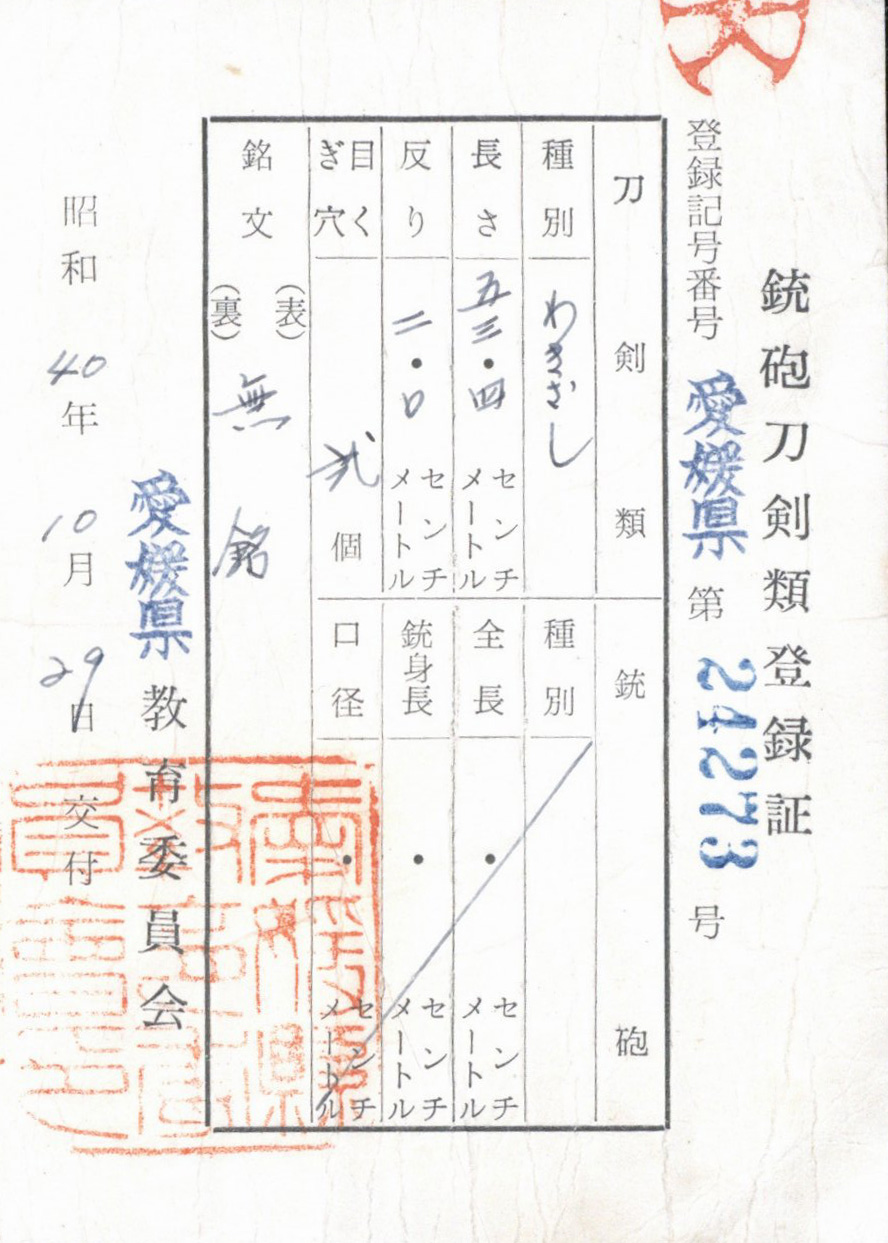 銃砲刀剣類登録証
登録記号番号 愛媛県 第 24273 号
刀剣類
種別 わきざし
長さ 五三・四 センチメートル
反り 二・〇 センチメートル
目くぎ穴 弐 個
銘文 (表) (裏) 無銘
銃砲
種別
全長 ・ センチメートル
銃身長 ・ センチメートル
口径 ・ センチメートル
愛媛県 教育委員会
昭和 40年 10月 29日 交付